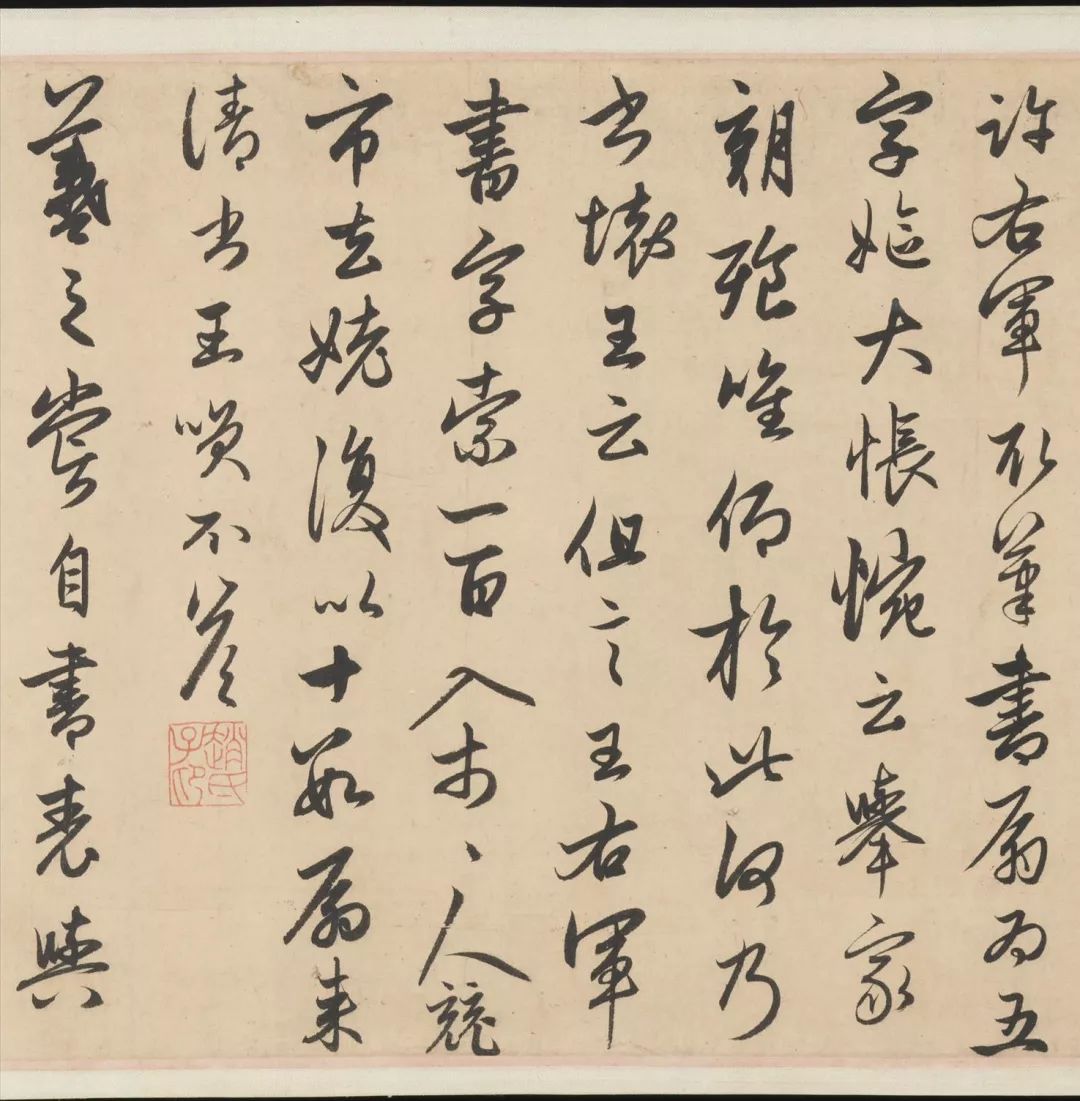 許右軍取筆書扇為五
字嫗大悵惋云舉家
朝飡唯仰於此何乃
書壞王云但言王右軍
書字索一百入市、人競
市去姥復以十數扇來
請書王笑不答
趙氏子昂
羲之嘗自書表與